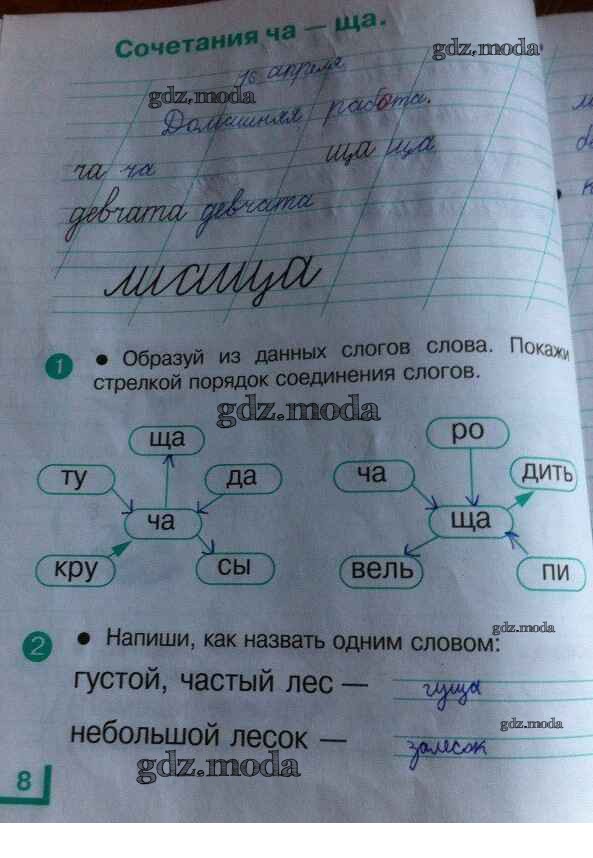 Сочетания ча — ща.
gdz.moda
16 апреля
gdz.moda
Домашняя работа.
ча ча ща ща
девчата девчата
лисица
1 • Образуй из данных слогов слова. Покажи
стрелкой порядок соединения слогов.
gdz.moda
ща ро
ту да ча дить
ча ща
кру сы вель пи
gdz.moda
2 • Напиши, как назвать одним словом:
густой, частый лес — гуща
gdz.moda
небольшой лесок — залесок
gdz.moda
8